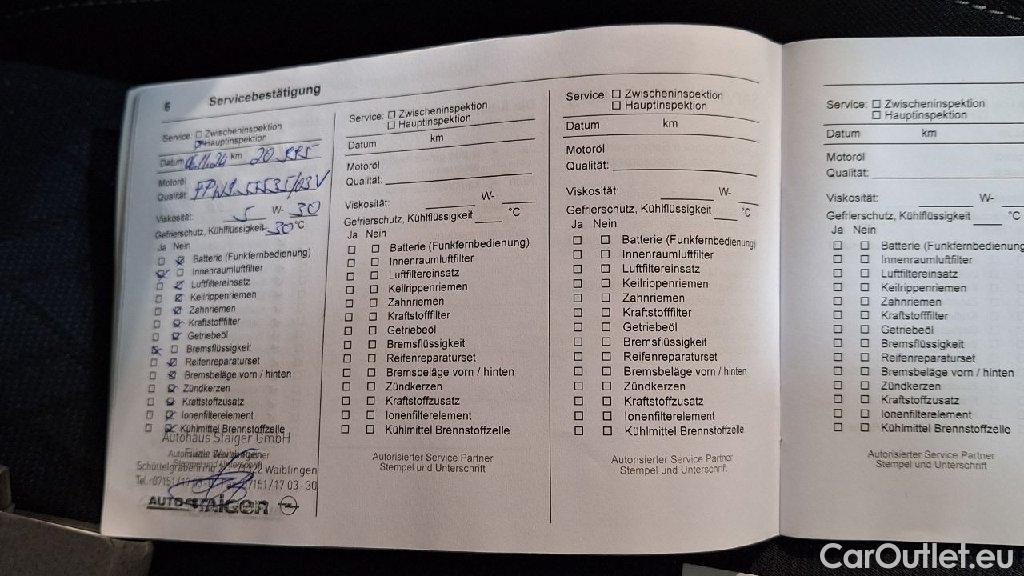 6 Servicebestätigung
Service: ☐ Zwischeninspektion
☑ Hauptinspektion
Datum km
Motoröl
Qualität:
Viskosität: 5 W- 30
Gefrierschutz, Kühlflüssigkeit -30 °C
Ja Nein
☐ ☑ Batterie (Funkfernbedienung)
☑ ☐ Innenraumluftfilter
☐ ☑ Luftfiltereinsatz
☐ ☑ Keilrippenriemen
☐ ☑ Zahnriemen
☐ ☑ Kraftstofffilter
☐ ☑ Getriebeöl
☑ ☐ Bremsflüssigkeit
☐ ☑ Reifenreparaturset
☐ ☑ Bremsbeläge vorn / hinten
☐ ☑ Zündkerzen
☐ ☑ Kraftstoffzusatz
☐ ☑ Ionenfilterelement
☐ ☑ Kühlmittel Brennstoffzelle
Autohaus Staiger GmbH
Waiblingen
AUTO STAIGER
Service: ☐ Zwischeninspektion
☐ Hauptinspektion
Datum km
Motoröl
Qualität:
Viskosität: W-
Gefrierschutz, Kühlflüssigkeit °C
Ja Nein
☐ ☐ Batterie (Funkfernbedienung)
☐ ☐ Innenraumluftfilter
☐ ☐ Luftfiltereinsatz
☐ ☐ Keilrippenriemen
☐ ☐ Zahnriemen
☐ ☐ Kraftstofffilter
☐ ☐ Getriebeöl
☐ ☐ Bremsflüssigkeit
☐ ☐ Reifenreparaturset
☐ ☐ Bremsbeläge vorn / hinten
☐ ☐ Zündkerzen
☐ ☐ Kraftstoffzusatz
☐ ☐ Ionenfilterelement
☐ ☐ Kühlmittel Brennstoffzelle
Autorisierter Service Partner
Stempel und Unterschrift
Service: ☐ Zwischeninspektion
☐ Hauptinspektion
Datum km
Motoröl
Qualität:
Viskosität: W-
Gefrierschutz, Kühlflüssigkeit °C
Ja Nein
☐ ☐ Batterie (Funkfernbedienung)
☐ ☐ Innenraumluftfilter
☐ ☐ Luftfiltereinsatz
☐ ☐ Keilrippenriemen
☐ ☐ Zahnriemen
☐ ☐ Kraftstofffilter
☐ ☐ Getriebeöl
☐ ☐ Bremsflüssigkeit
☐ ☐ Reifenreparaturset
☐ ☐ Bremsbeläge vorn / hinten
☐ ☐ Zündkerzen
☐ ☐ Kraftstoffzusatz
☐ ☐ Ionenfilterelement
☐ ☐ Kühlmittel Brennstoffzelle
Autorisierter Service Partner
Stempel und Unterschrift
Service: ☐ Zwischeninspektion
☐ Hauptinspektion
Datum km
Motoröl
Qualität:
Viskosität: W-
Gefrierschutz, Kühlflüssigkeit
Ja Nein
☐ ☐ Batterie (Funkfernbedienung
☐ ☐ Innenraumluftfilter
☐ ☐ Luftfiltereinsatz
☐ ☐ Keilrippenriemen
☐ ☐ Zahnriemen
☐ ☐ Kraftstofffilter
☐ ☐ Getriebeöl
☐ ☐ Bremsflüssigkeit
☐ ☐ Reifenreparaturset
☐ ☐ Bremsbeläge vorn / hinten
☐ ☐ Zündkerzen
☐ ☐ Kraftstoffzusatz
☐ ☐ Ionenfilterelement
☐ ☐ Kühlmittel Brennstoffzelle
Autorisierter Service Partner
Stempel und Unterschrift
CarOutlet.eu